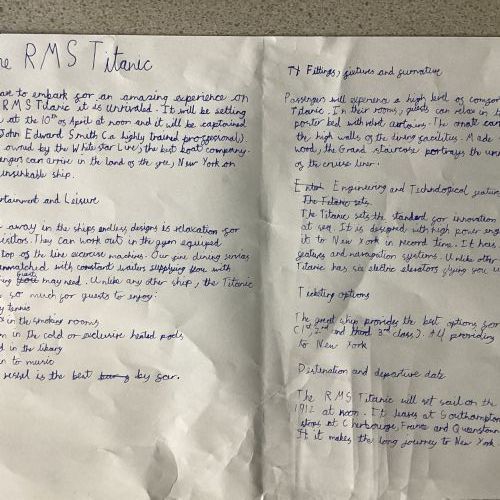 he RMS Titanic
are to embark for an amazing experience on
RMS Titanic it is unrivaled. It will be setting
at the 10th of April at noon and it will be captained
John Edward Smith (a highly trained professional).
owned by the White Star Line, the best boat company.
can arrive in the land of the free, New York on
unsinkable ship.
rtainment and Leisure
away in the ships endless designs is relaxation for
isitors. They can work out in the gym equiped
top of the line exercise machines. Our fine dining
unmatched with constant waiters supplying you with
guests may need. Unlike any other ship, the Titanic
so much for guests to enjoy:
y tennis
in the smoking rooms
m in the cold or exclusive heated pools
d in the libary
en to music
vessel is the best by far.
Fittings, fixtures and furnature
Passengers will experience a high level of comfort
Titanic. In their rooms, guests can relax in th
poster bed with velvet curtains. The ornate
the high walls of the living facilities. Made
wood, the Grand staircase portrays the
of the cruise liner.
Engineering and Technological feature
The
The Titanic sets the standard for innovation
at sea. It is designed with high power eng
it to New York in record time. It has
features and navagation systems. Unlike other
Titanic has electric elevators flying you u
Ticketing options
The great ship provides the best options for
(1st 2nd and third 3rd class). All providing
to New York
Distenation and departure date
The RMS Titanic will set sail on the
1912 at noon. It leaves at Southampton
stops at Cherbourge, France and Queenstown
it makes the long journey to New York